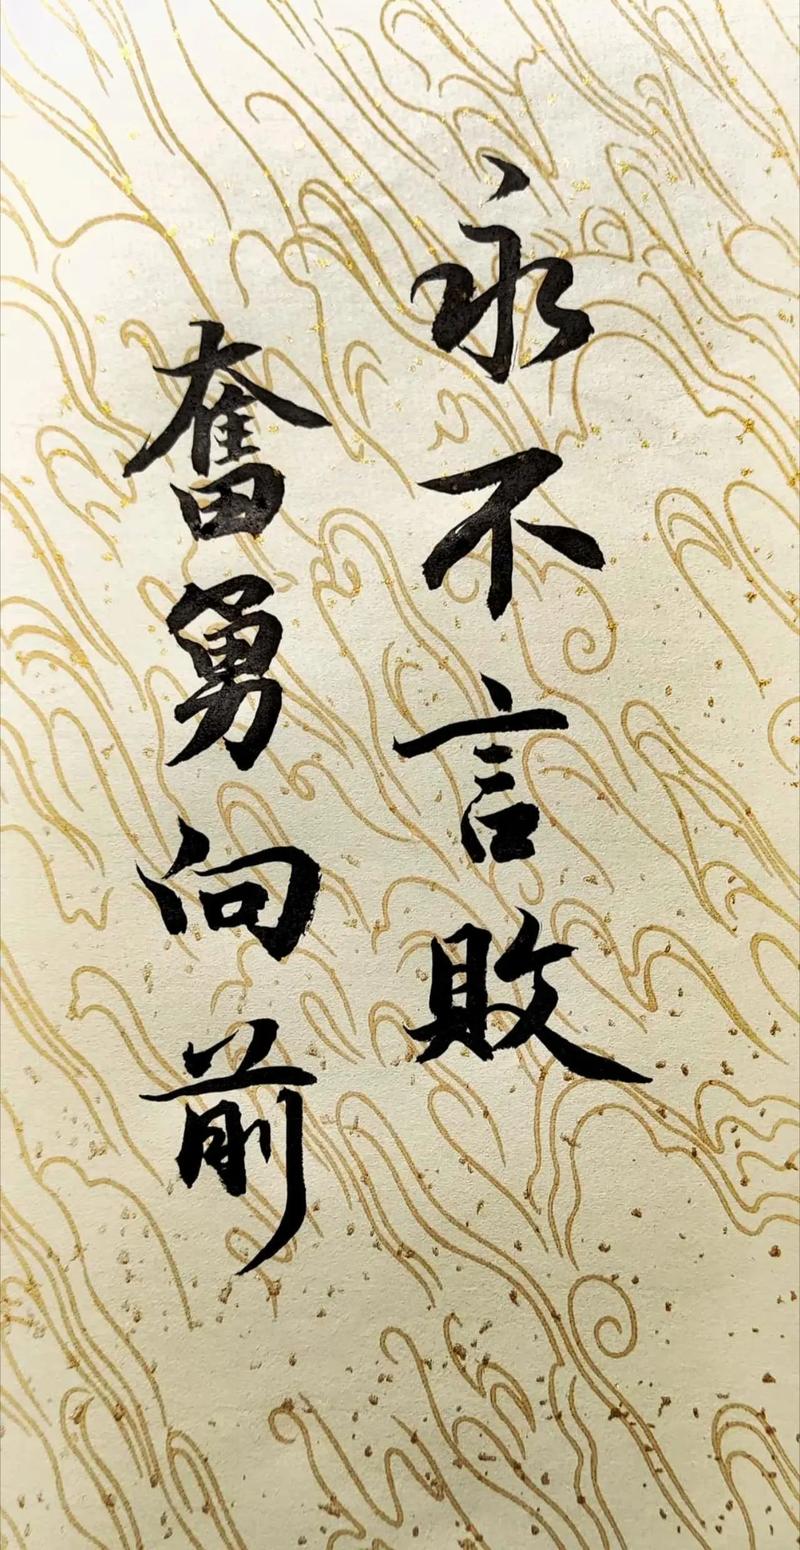 永不言敗
奮勇向前